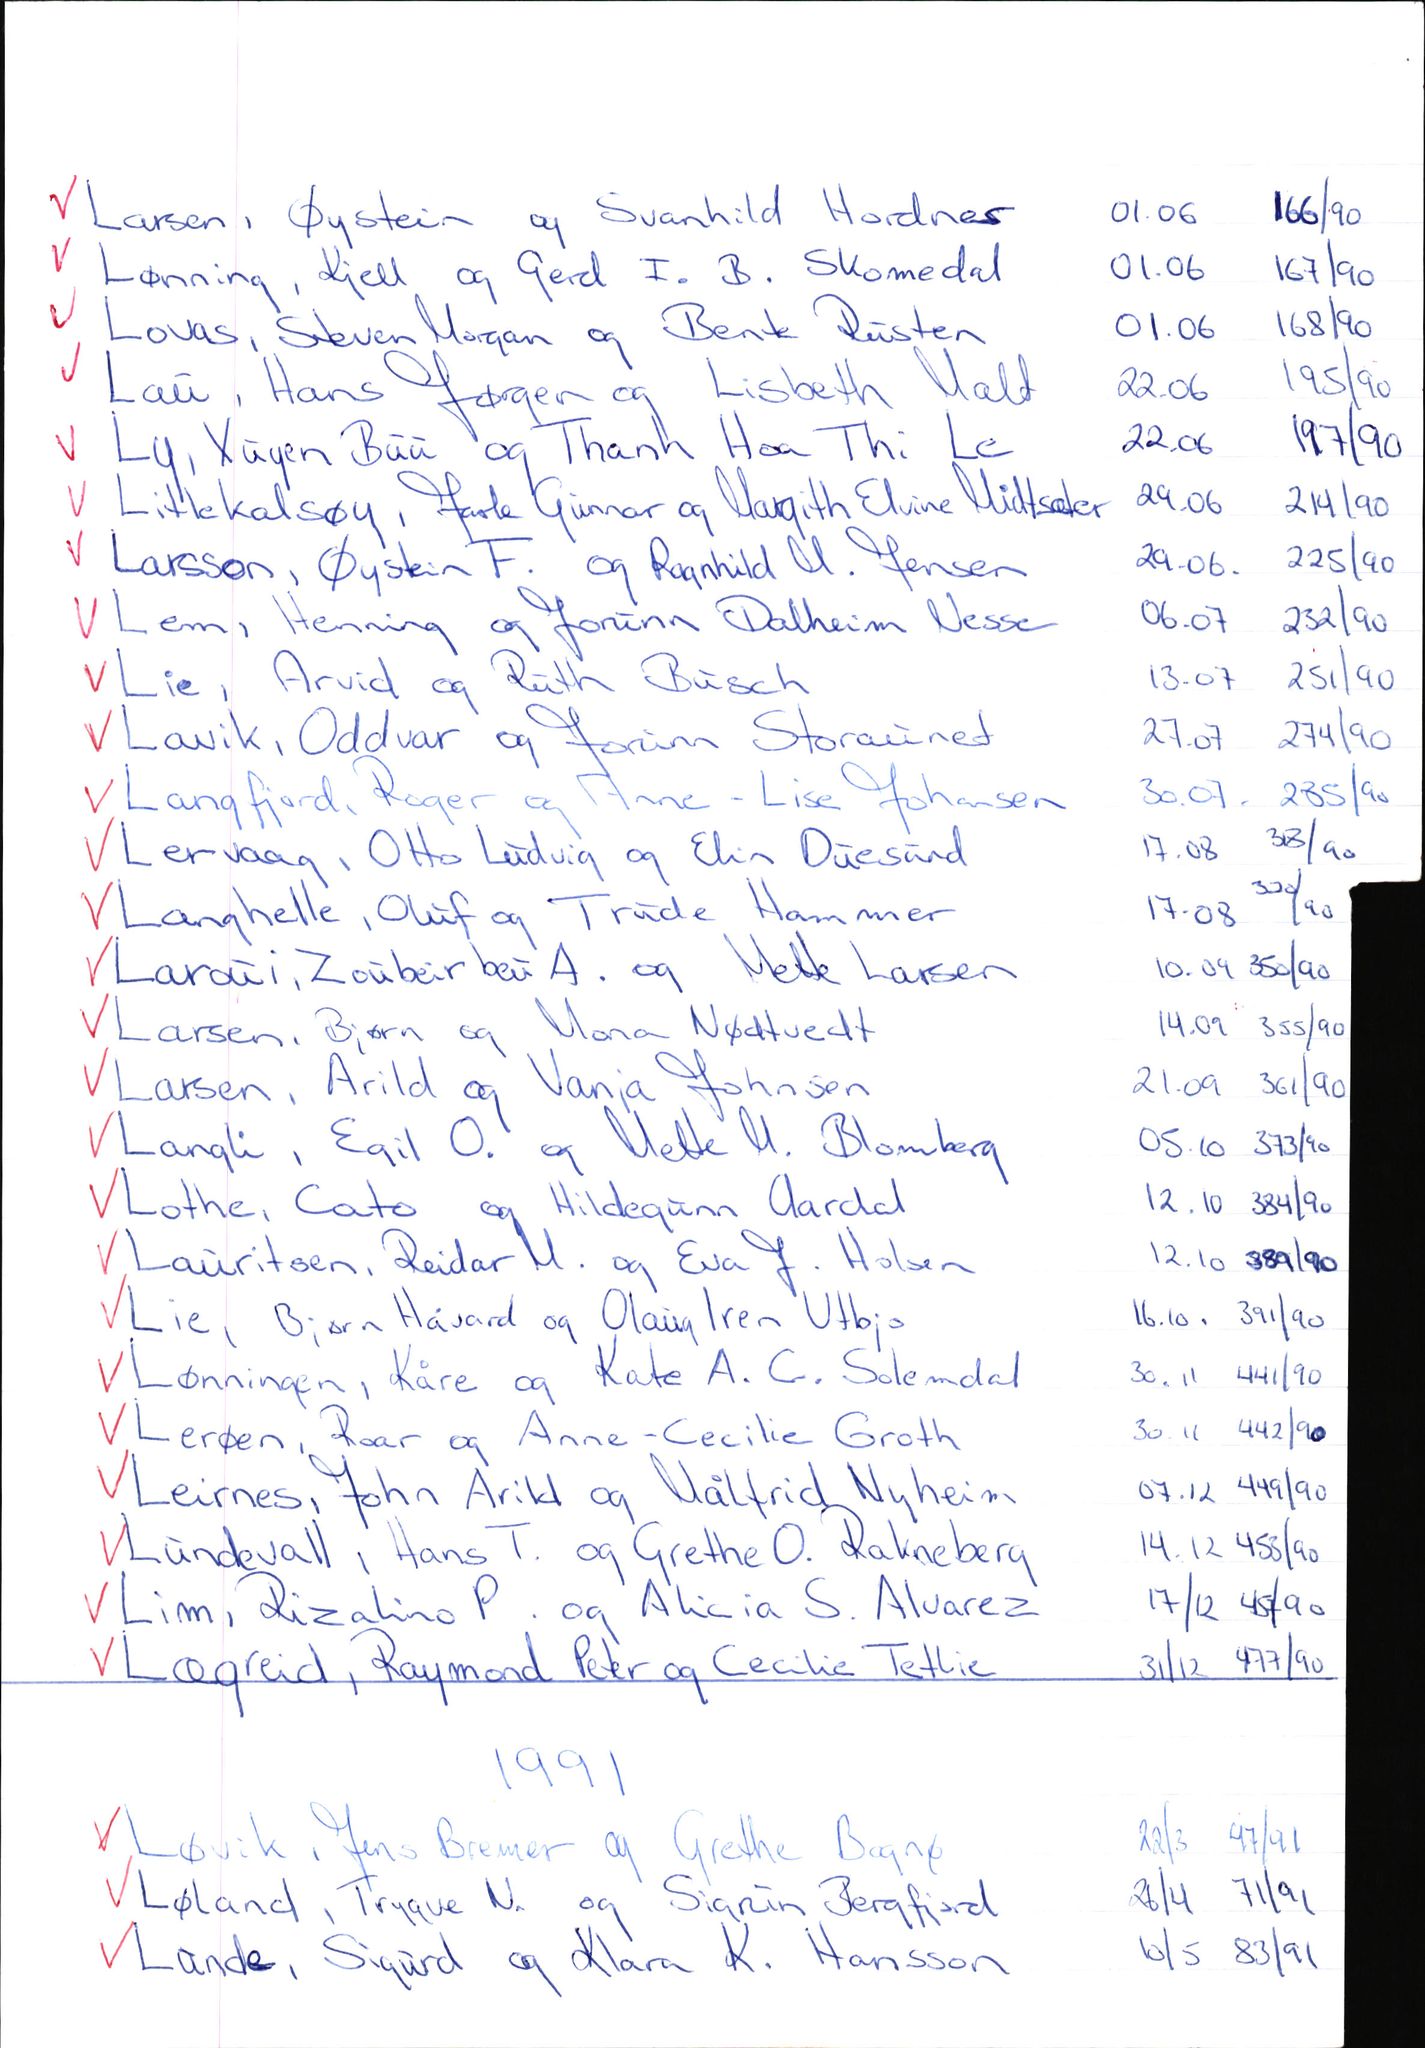 Larsen, Øystein og Svanhild Hordnes 01.06 166/90
Lønning, Kjell og Gerd I. B. Skomedal 01.06 167/90
Lovas, Steven Morgan og Bente Rusten 01.06 168/90
Lau, Hans Jørgen og Lisbeth Malt 22.06 195/90
Ly, Xuyen Buu og Thanh Hoa Thi Le 22.06 197/90
Littlekalsøy, Jarle Gunnar og Margith Elvine Midtsæter 29.06 214/90
Larsson, Øystein F. og Ragnhild M. Jensen 29.06. 225/90
Lem, Henning og Jorunn Dalheim Nesse 06.07 232/90
Lie, Arvid og Ruth Busch 13.07 251/90
Lavik, Oddvar og Jorunn Storaunet 27.07 274/90
Langfjord, Roger og Anne-Lise Johansen 30.07. 285/90
Lervaag, Otto Ludvig og Elin Duesund 17.08 /90
Langhelle, Oluf og Trude Hammer 17.08 320/90
Laroui, Zoubeir ben A. og Mette Larsen 10.09 350/90
Larsen, Bjørn og Mona Nødtvedt 14.09 355/90
Larsen, Arild og Vanja Johnsen 21.09 361/90
Langli, Egil O. og Mette M. Blomberg 05.10 373/90
Lothe, Cato og Hildegunn Aardal 12.10 384/90
Lauritsen, Reidar M. og Eva J. Holsen 12.10 389/90
Lie, Bjørn Håvard og Olaug Iren Utbjo 16.10. 391/90
Lønningen, Kåre og Kate A. C. Solemdal 30.11 441/90
Lerøen, Roar og Anne-Cecilie Groth 30.11 442/90
Leirnes, John Arild og Målfrid Nyheim 07.12 449/90
Lundevall, Hans T. og Grethe O. Rakneberg 14.12 453/90
Lim, Rizalino P. og Alicia S. Alvarez 17/12 457/90
Lægreid, Raymond Peter og Cecilie Tetlie 31/12 477/90
1991
Løvik, Jens Bremer og Grethe Bognø 22/3 47/91
Løland, Trygve N. og Sigrun Bergfjord 26/4 71/91
Lunde, Sigurd og Klara K. Hansson 10/5 83/91